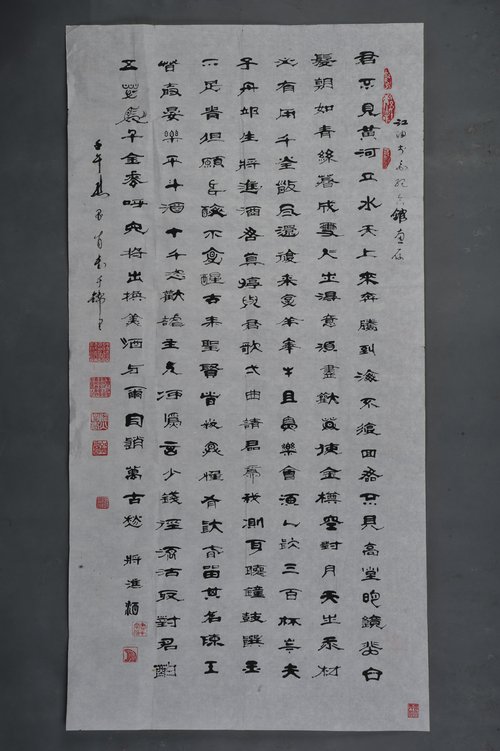 江油李白纪念館惠存
君不見黃河之水天上來奔騰到海不復回君不見高堂明鏡悲白
髮朝如青絲暮成雪人生得意須盡歡莫使金樽空對月天生我材
必有用千金散盡還復來烹羊宰牛且為樂會須一飲三百杯岑夫
子丹邱生將進酒君莫停與君歌一曲請君為我側耳聽鐘鼓饌玉
不足貴但願長醉不復醒古來聖賢皆寂寞惟有飲者留其名陳王
昔宴樂平斗酒十千恣歡謔主人何為言少錢徑須沽取對君酌
五花馬千金裘呼兒將出換美酒與爾同銷萬古愁 將進酒
壬午